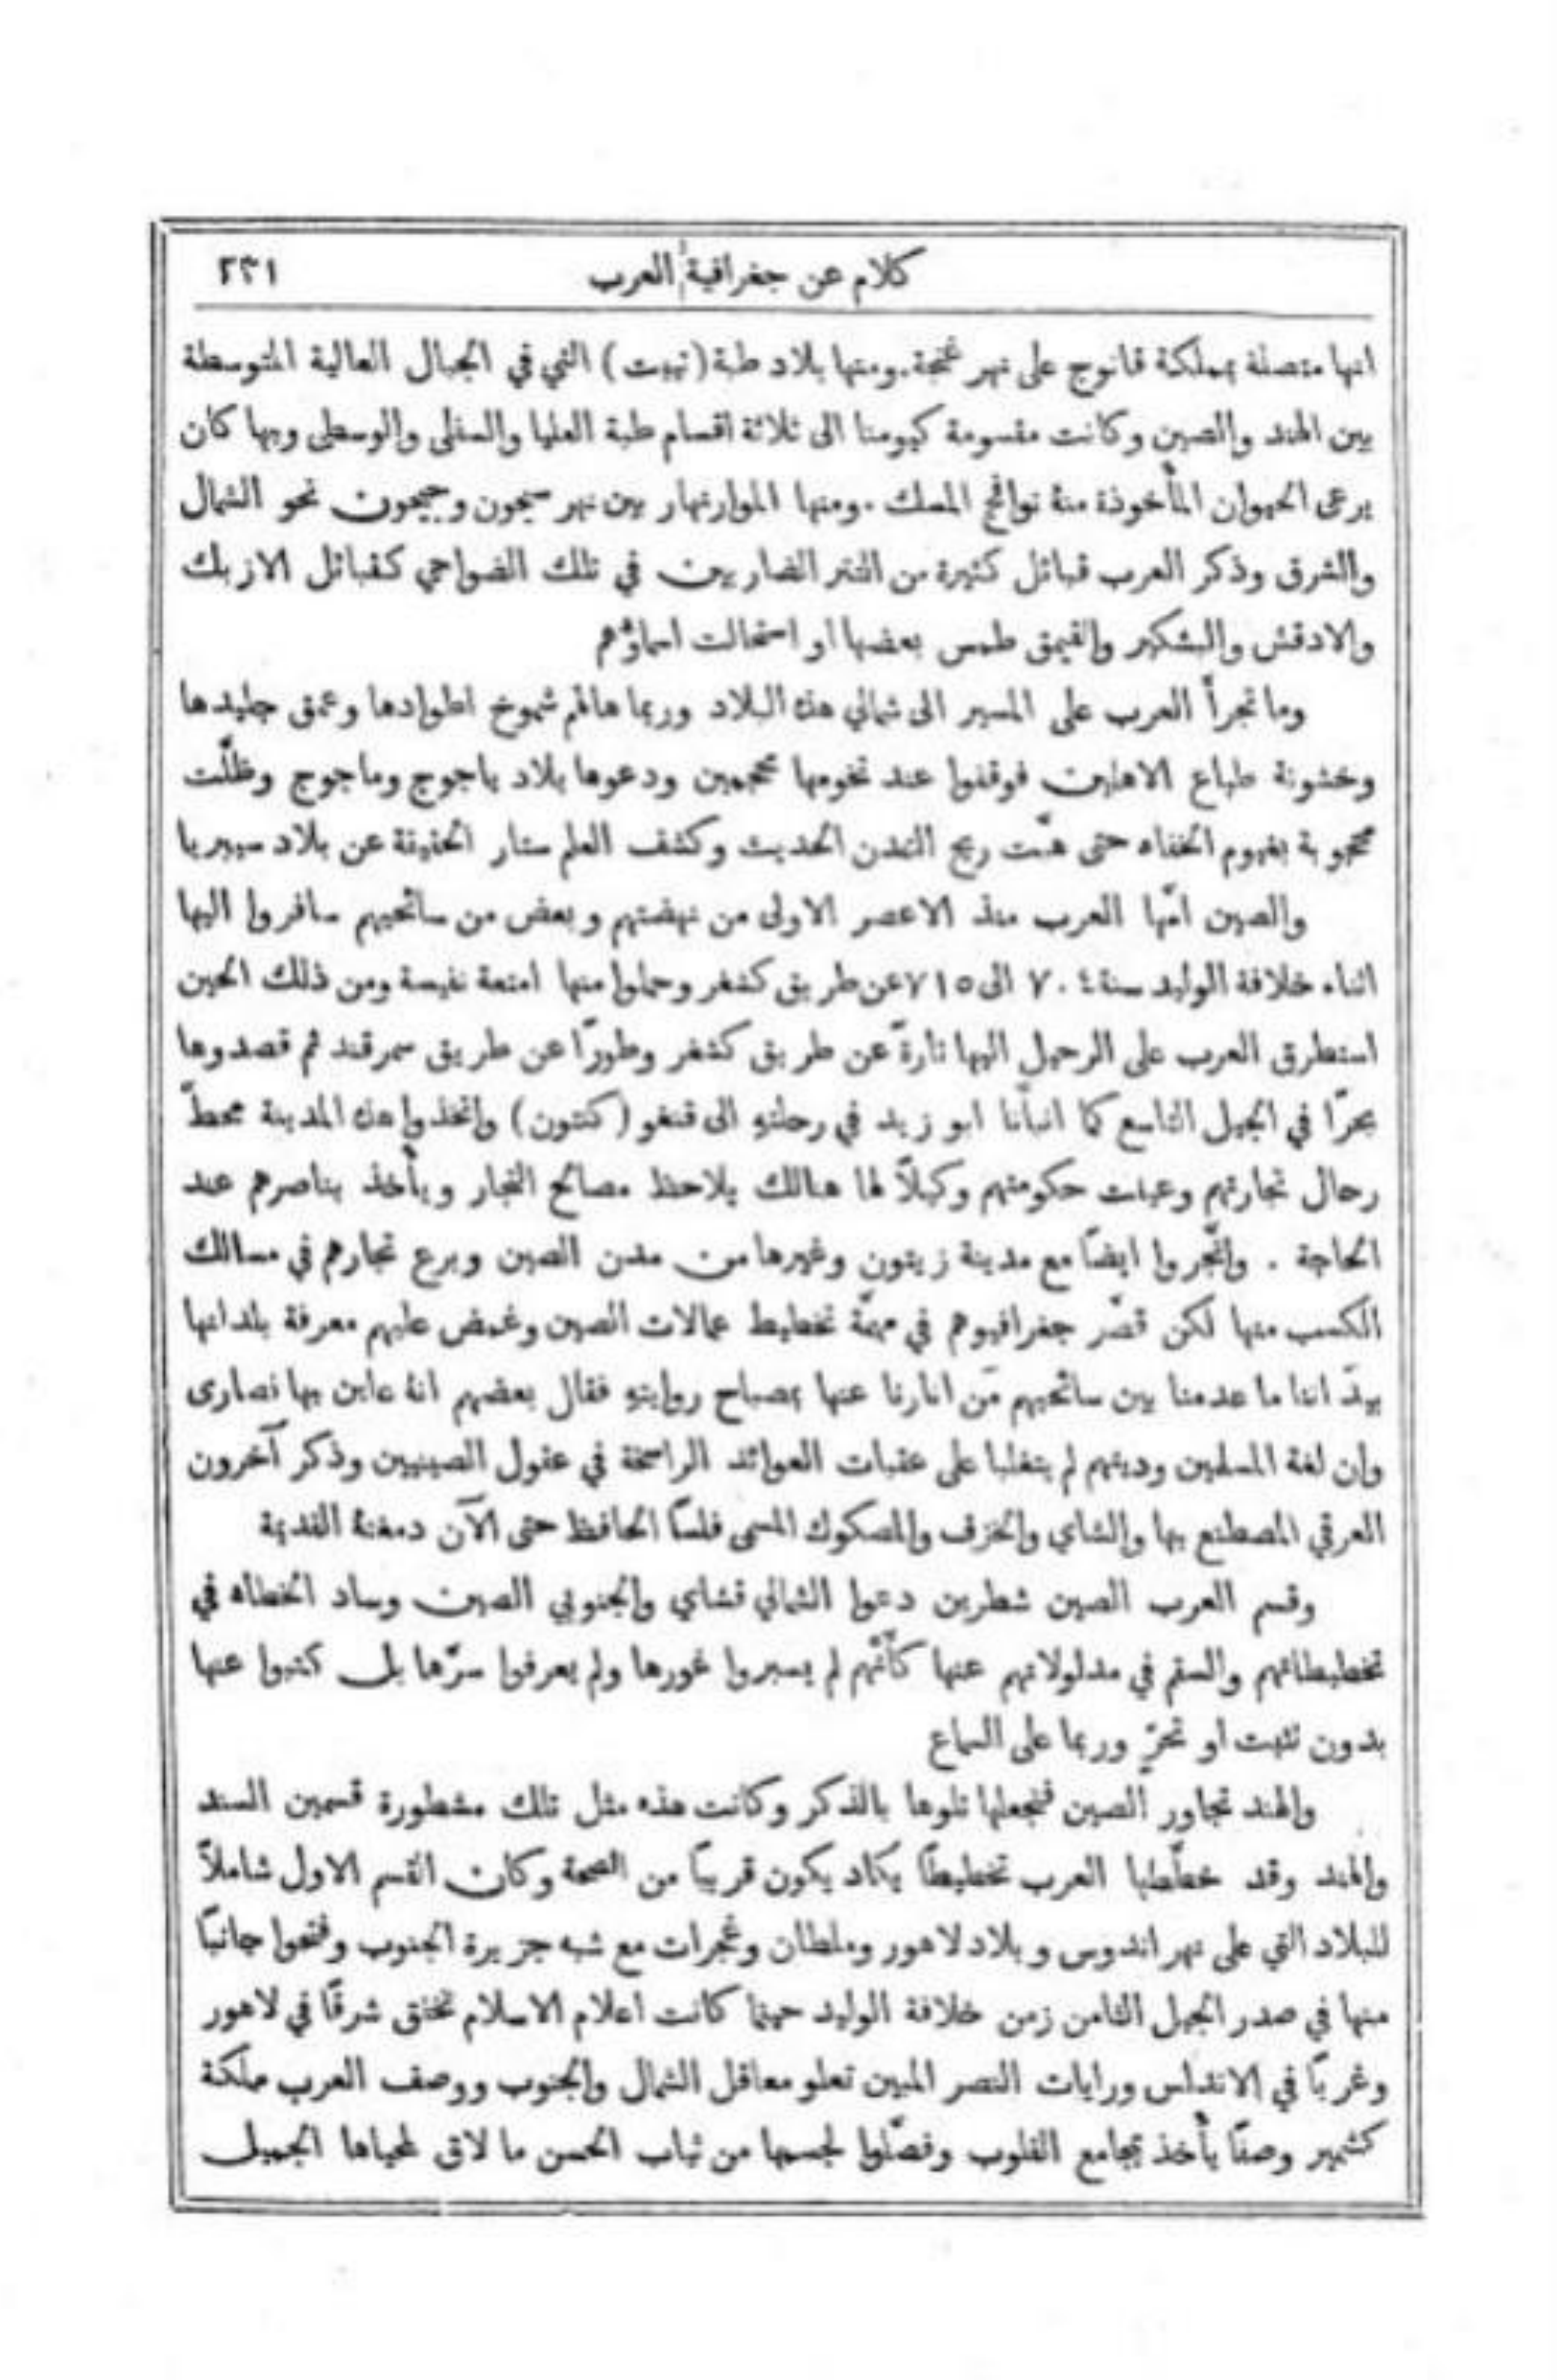 كلام عن جغرافية العرب ٢٣١
انها متصلة بمملكة قانوج على نهر غنجة. ومنها بلاد طبة (تيبت) التي في الجبال العالية المتوسطة
بين الهند والصين وكانت مقسومة كيومنا الى ثلاثة اقسام طبة العليا والسفلى والوسطى وبها كان
يرعى الحيوان المأخوذة منهُ نوافج المسك. ومنها الموارنهار بين نهر سيحون وجيحون نحو الشمال
والشرق وذكر العرب قبائل كثيرة من التتر الضاربين في تلك الضواحي كقبائل الازبك
والادقش والبشكير والقيمق طمس بعضها او استحالت اسماؤهم
وما تجرأ العرب على المسير الى شمالي هذه البلاد وربما هالهم شموخ اطوادها وعمق جليدها
وخشونة طباع الاهلين فوقفوا عند تخومها محجمين ودعوها بلاد ياجوج وماجوج وظلَّت
محجوبة بغيوم الخفاء حتى هبَّت ريح التمدن الحديث وكشف العلم ستار الحقيقة عن بلاد سيبيريا
والصين امَّها العرب منذ الاعصر الاولى من نهضتهم وبعض من سائحيهم سافروا اليها
اثناء خلافة الوليد سنة ٧٠٤ الى ٧١٥ عن طريق كشغر وحملوا منها امتعة نفيسة ومن ذلك الحين
استطرق العرب على الرحيل اليها تارةً عن طريق كشغر وطورًا عن طريق سمرقند ثم قصدوها
بحرًا في الجيل التاسع كما انبأنا ابو زيد في رحلتهِ الى قنغو (كنتون) واتخذوا هذه المدينة محطّ
رحال تجارتهم وعينت حكومتهم وكيلًا لها هنالك يلاحظ مصالح التجار ويأخذ بناصرهم عند
الحاجة. واتَّجروا ايضًا مع مدينة زيتون وغيرها من مدن الصين وبرع تجارهم في مسالك
الكسب منها لكن قصَّر جغرافيوهم في مهمَّة تخطيط عمالات الصين وغمض عليهم معرفة بلدانها
بيدَ اننا ما عدمنا بين سائحيهم مَن انارنا عنها بمصباح روايتهِ فقال بعضهم انهُ عاين بها نصارى
وان لغة المسلمين ودينهم لم يتغلبا على عقبات العوائد الراسخة في عقول الصينيين وذكر آخرون
العرقي المصطنع بها والشاي والخزف والمسكوك المسمى فلسًا الحافظ حتى الآن دمغتهُ القديمة
وقسم العرب الصين شطرين دعوا الشمالي قشاي والجنوبي الصين وساد الخطاء في
تخطيطاتهم والسقم في مدلولاتهم عنها كأنَّهم لم يسبروا غورها ولم يعرفوا سرَّها بل كتبوا عنها
بدون تثبت او تحرٍّ وربما على السماع
والهند تجاور الصين فنجعلها تلوها بالذكر وكانت هذه مثل تلك مشطورة قسمين السند
والهند وقد خطَّطها العرب تخطيطًا يكاد يكون قريبًا من الصحة وكان القسم الاول شاملًا
للبلاد التي على نهر اندوس وبلاد لاهور وملطان وغجرات مع شبه جزيرة الجنوب وفتحوا جانبًا
منها في صدر الجيل الثامن زمن خلافة الوليد حينما كانت اعلام الاسلام تخفق شرقًا في لاهور
وغربًا في الاندلس ورايات النصر المبين تعلو معاقل الشمال والجنوب ووصف العرب مملكة
كشمير وصفًا يأخذ بمجامع القلوب وفصَّلوا لجسمها من ثياب الحسن ما لاق لمحياها الجميل